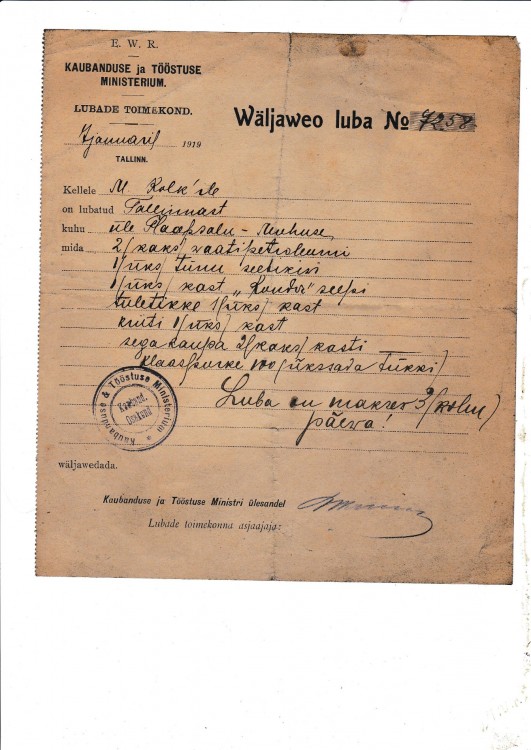 E. W. R.
KAUBANDUSE ja TÖÖSTUSE
MINISTERIUM.
LUBADE TOIMEKOND.
Wäljaweo luba № 7258
7 januaril 1919
TALLINN.
Kellele M. Kolk'ile
on lubatud Tallinnast
kuhu üle Haapsalu - Muhusse,
mida 2/kaks/ vaati petroleumi
1/üks/ tünn seebikivi
1/üks/ kast "London" seepi
tuletikke 1/üks/ kast
kriiti 1/üks/ kast
sega kaupa 2/kaks/ kasti
klaaspurke 100/ükssada tükki/
Luba on maksev 3/kolm/
päeva!
Kaubanduse & Tööstuse Ministeerium
Kauband.
Osakond
wäljawedada.
Kaubanduse ja Tööstuse Ministri ülesandel
Lubade toimekonna asjaajaja: